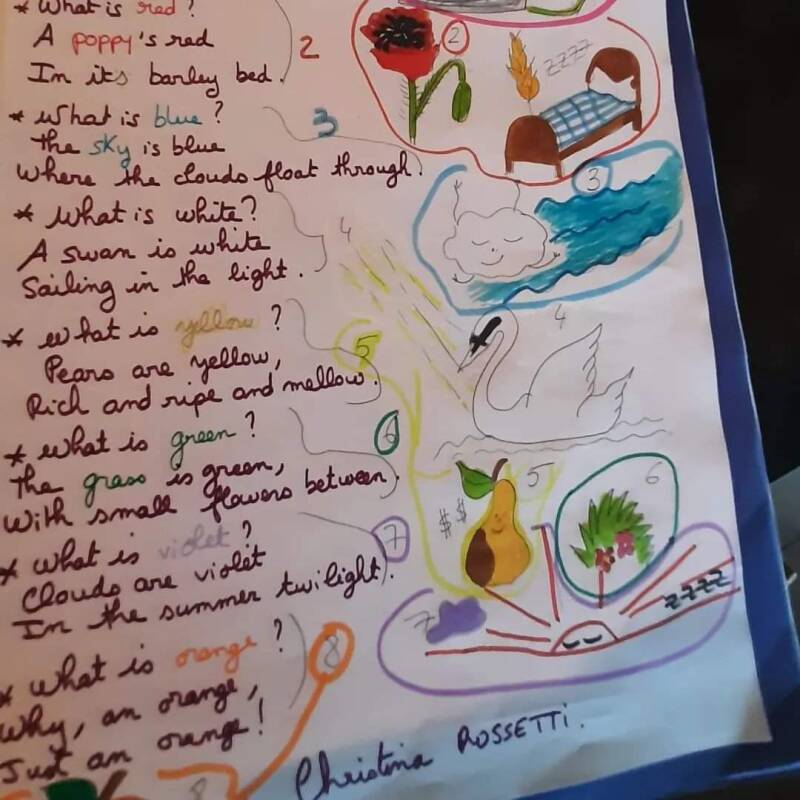 * What is red?
A poppy's red
In its barley bed.
2
2
zzzz
* What is blue?
The sky is blue
Where the clouds float through.
3
3
* What is white?
A swan is white
Sailing in the light.
4
4
* What is yellow?
Pears are yellow,
Rich and ripe and mellow.
5
5
$$
* What is green?
The grass is green,
With small flowers between.
6
6
* What is violet?
Clouds are violet
In the summer twilight.
7
7
zzzz
* What is orange?
Why, an orange,
Just an orange!
8
8
Christina ROSSETTi.